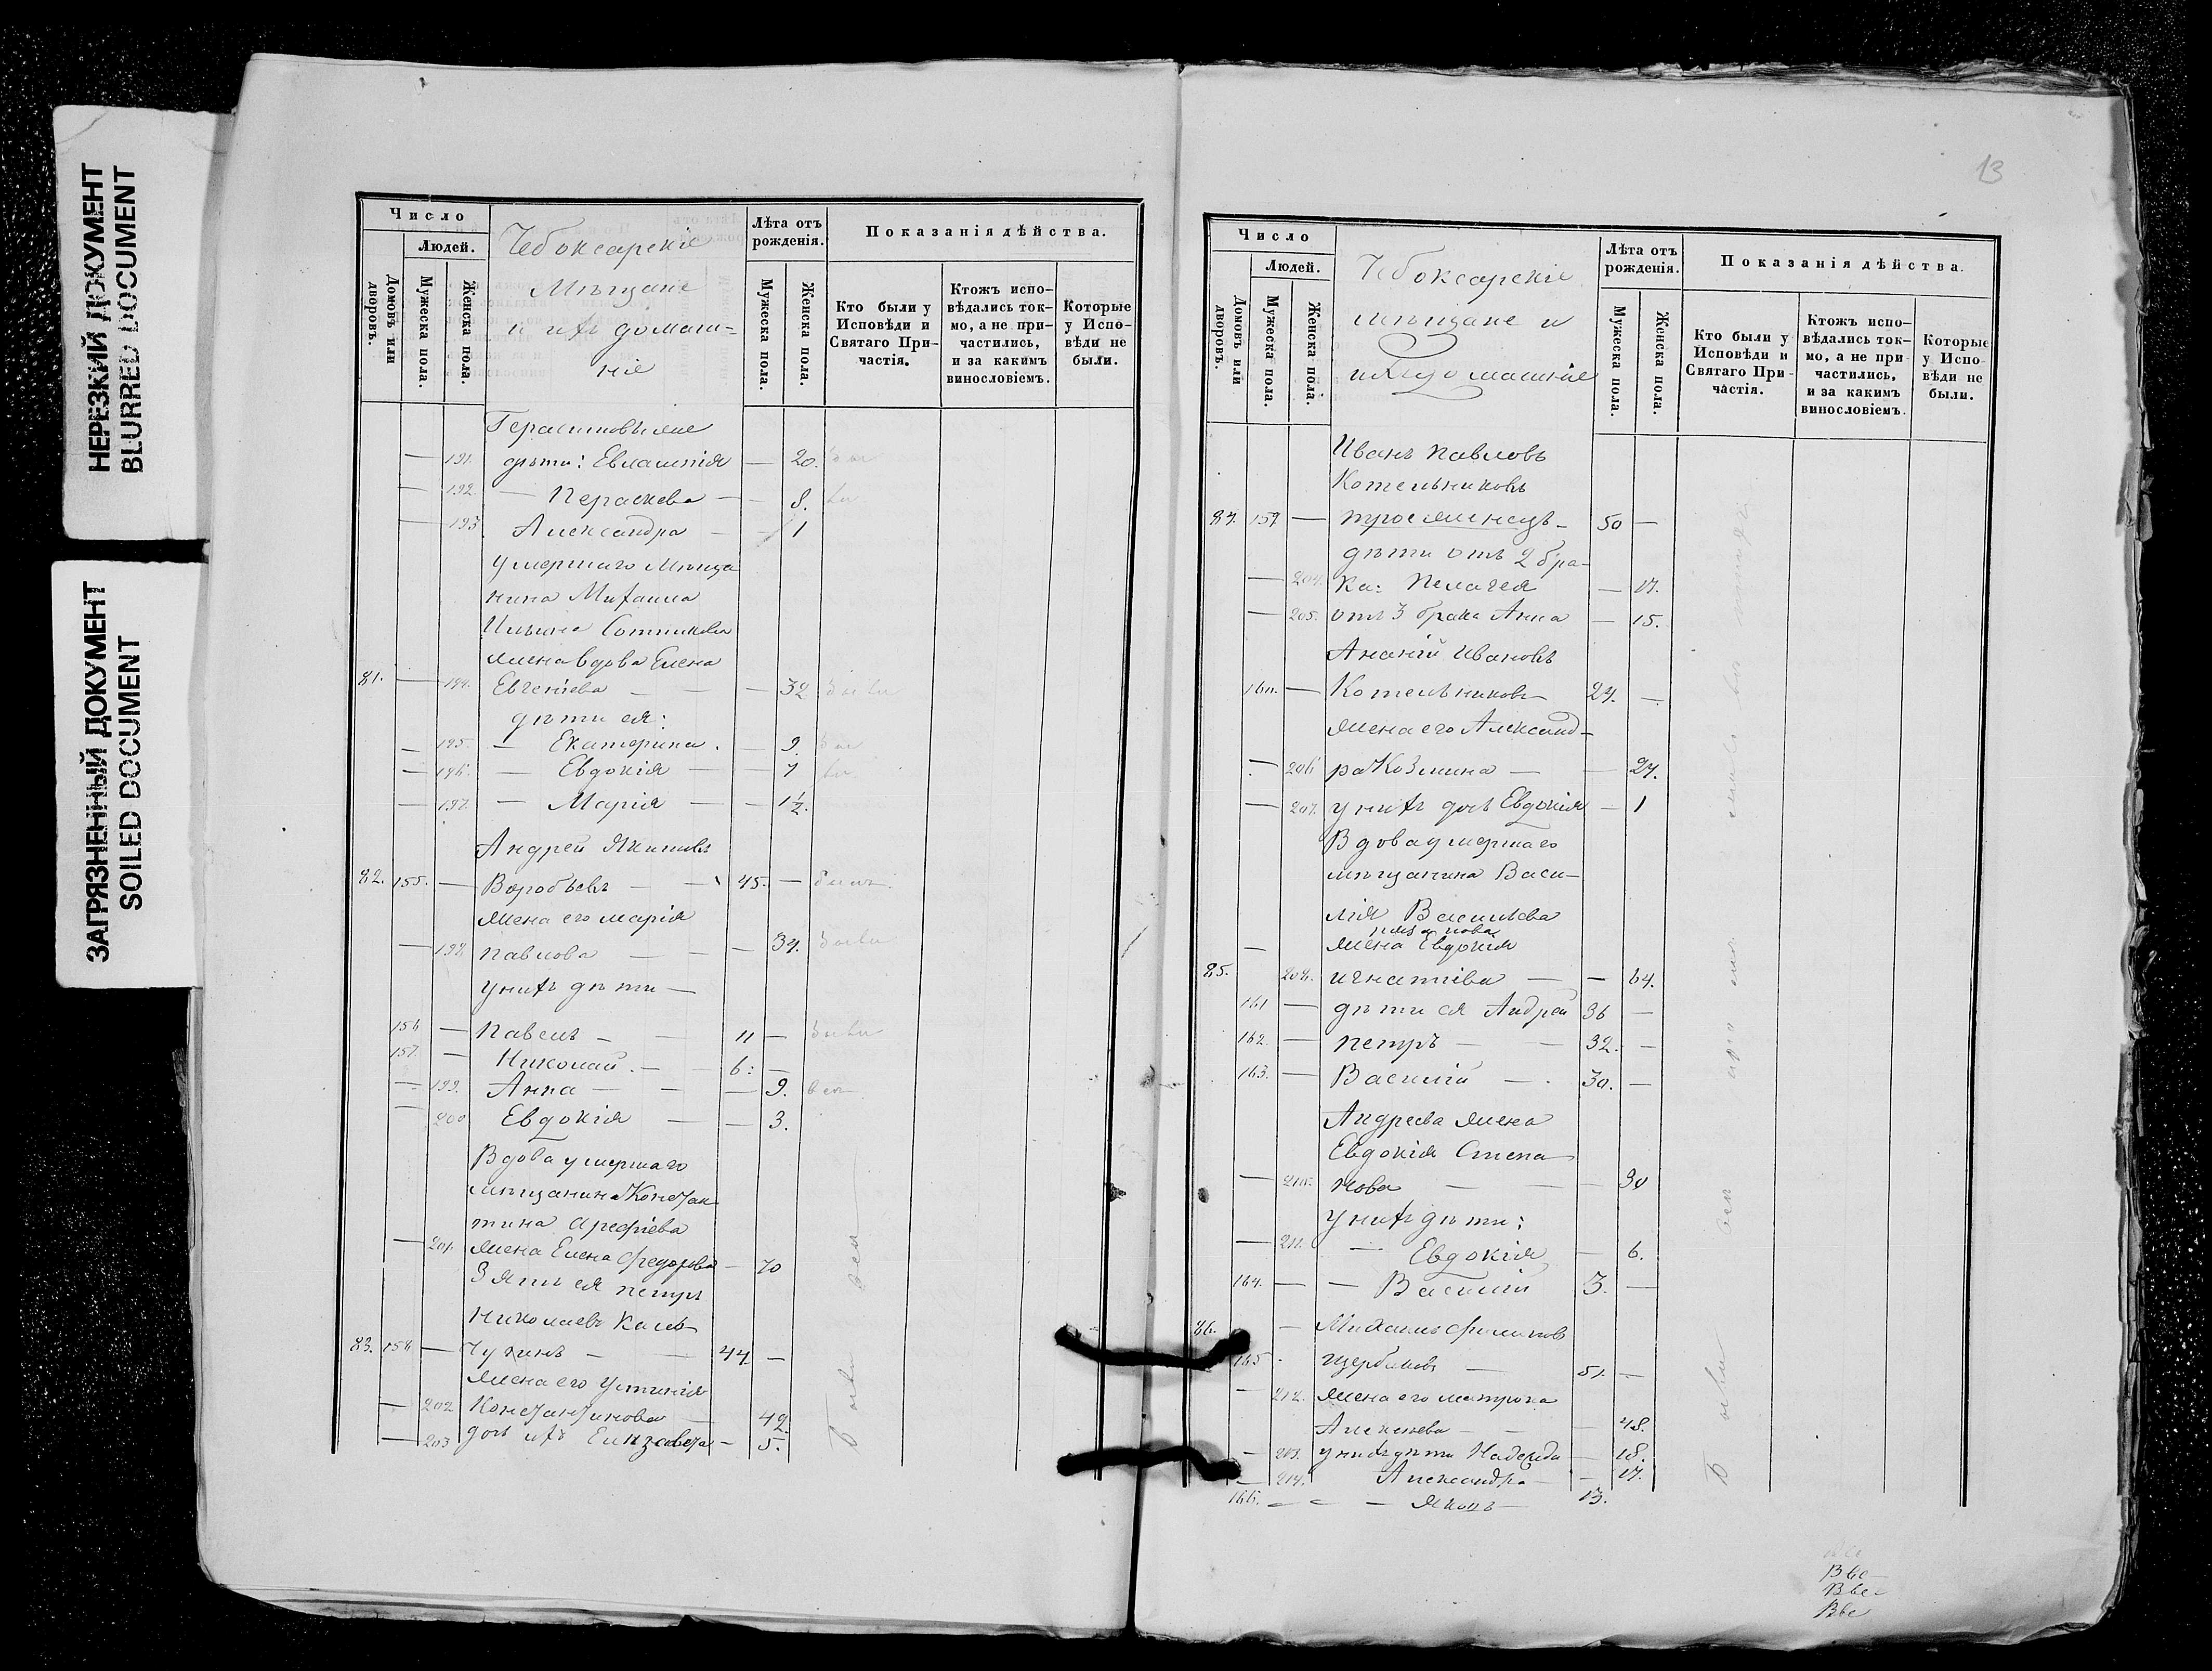 НЕРЕЗКИЙ ДОКУМЕНТ
BLURRED DOCUMENT
ЗАГРЯЗНЕННЫЙ ДОКУМЕНТ
SOILED DOCUMENT
Число
Людей.
Домовъ или дворовъ.
Мужеска пола.
Женска пола.
Чебоксарскіе
Мѣщане
и ихъ домаш-
ніе
Лѣта отъ рожденія.
Мужеска пола.
Женска пола.
Показанія дѣйства.
Кто были у Исповѣди и Святаго При-частія.
Ктожъ испо-вѣдались ток-мо, а не при-частились, и за какимъ винословіемъ.
Которые у Испо-вѣди не были.
Герасимовы
— 191. дѣти: Евлампія — 20.
— 192. — Пераскева — 8.
— 193 Александра — 1
умершаго Мѣща
нина Михаила
Ильина Сотникова
жена вдова Елена
81. — 194. Евгеніева — — — 32 были
дѣти ея:
— 195. — Екатерина. — 9.
— 196. — Евдокія — — 7
— 197. — Марія — — 1½.
Андрей Якимовъ
82. 155. — Воробьевъ — — 45. — былъ.
жена его Марія
— 198 Павлова — — — 34. были
у нихъ дѣти —
156 — Павелъ — — 11 — были
157. — Николай. — 6: —
— 199. Анна — — — 9.
— 200 Евдокія — — 3.
Вдова умершаго
мѣщанина Констан
тина Арефіева
— 201. жена Елена Федорова — 70
Зять ея Петръ
Николаевъ Каль
83. 158 — — — 44 —
жена его Устинія
— 202 Константинова — 42.
— 203 дочь ихъ Елизавета — 5.
Были вси
13
Число
Людей.
Домовъ или дворовъ.
Мужеска пола.
Женска пола.
Чебоксарскіе
мѣщане и
ихъ домашніе
Лѣта отъ рожденія.
Мужеска пола.
Женска пола.
Показанія дѣйства.
Кто были у Исповѣди и Святаго При-частія.
Ктожъ испо-вѣдались ток-мо, а не при-частились, и за какимъ винословіемъ.
Которые у Испо-вѣди не были.
Иванъ Павловъ
Котельниковъ
84. 159 — троеженецъ — 50 —
дѣти отъ 2 бра-
— 204. ка: Пелагея — 17.
— 205. отъ 3 брака Анна — 15.
Ананій Ивановъ
160. — Котельниковъ — 24. —
жена его Александ-
— 206 ра Козмина — — 24.
— 207. у нихъ дочь Евдокія — 1
Вдова умершаго
мѣщанина Васи-
лія Васильева
— жена Евдокія
85. 208. Игнатіева — — 64.
161 — дѣти ея Андрей 36 —
162. — Петръ — — 32. —
163. — Василій — 30. —
Андреева жена
Евдокія Степа
— 210. нова — — — 30
у нихъ дѣти:
— 211. — Евдокія — 6.
164. — — Василій 3. —
86. — Михаилъ Филиповъ
165 Щербаковъ — 51. —
— 212. жена его Матрона
Алексеева — — — 48.
— 213. у нихъ дѣти Надежда — 18.
— 214. Александра — — 17.
166. — — — Яковъ — 13.
Были вси
Вве
Вве
Вве